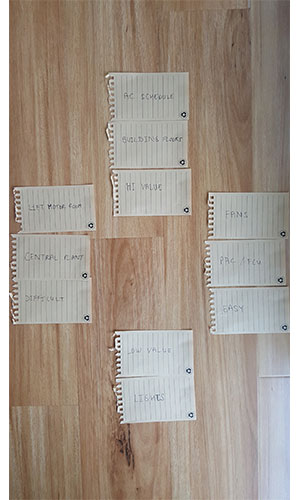 AC SCHEDULE
BUILDING FLOORS
HI VALUE
LIFT MOTOR ROOM
CENTRAL PLANT
DIFFICULT
FANS
PAC / FCU
EASY
LOW VALUE
LIGHTS